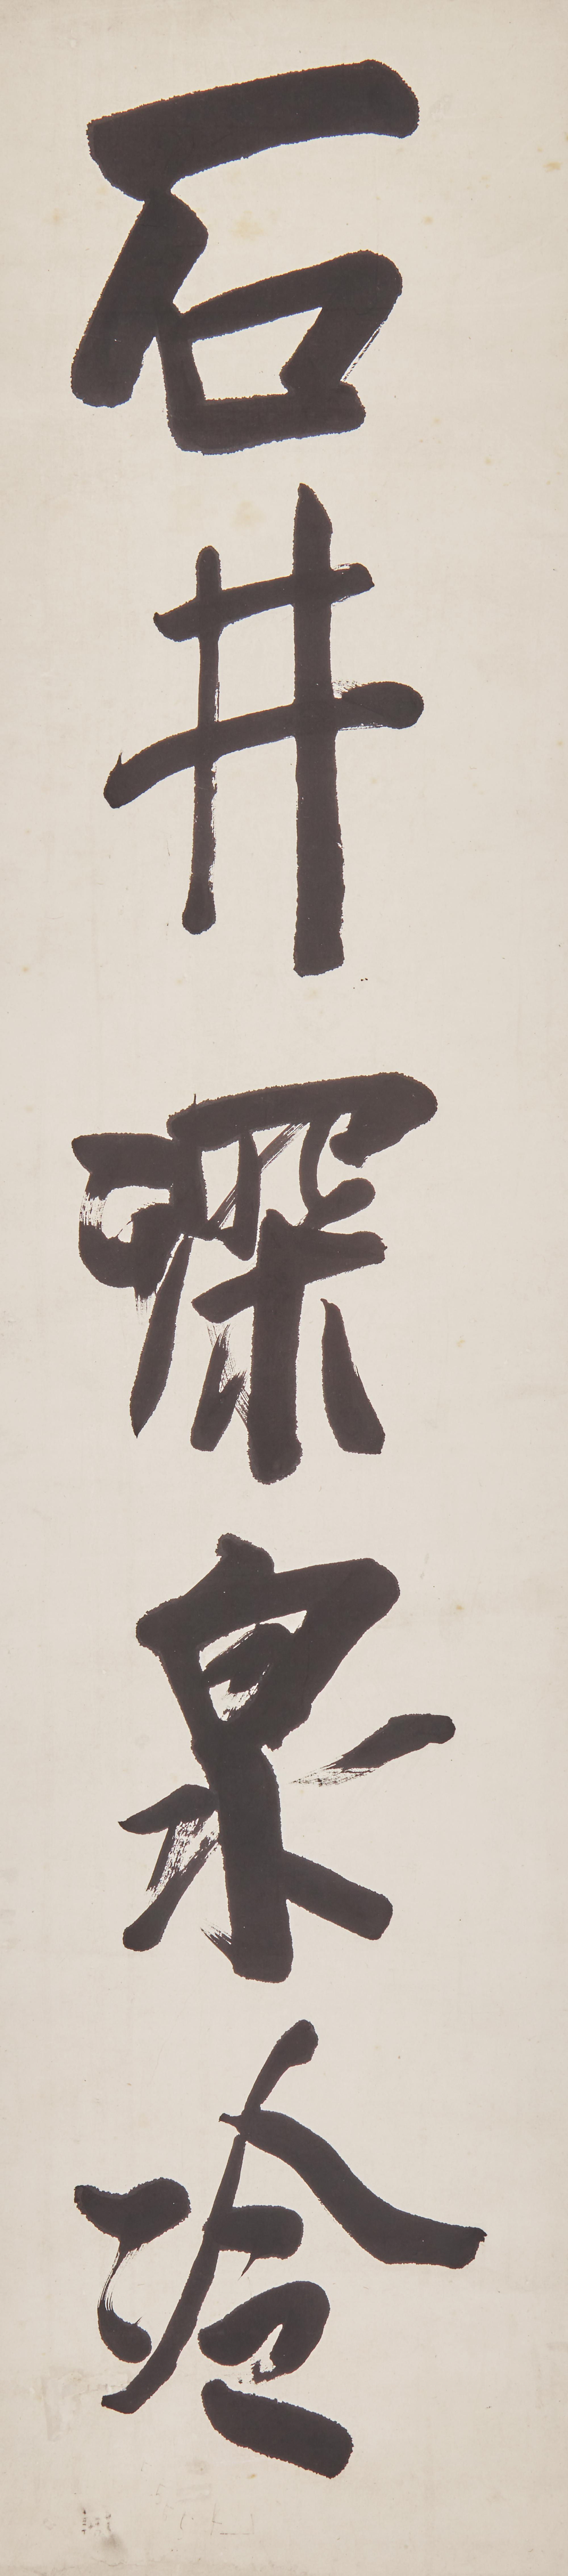 石井深泉冷